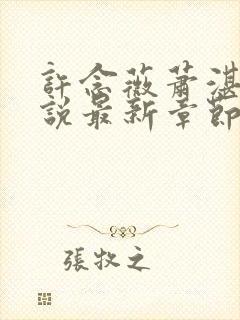 許念薇蕭湛
說最新章節
張牧之